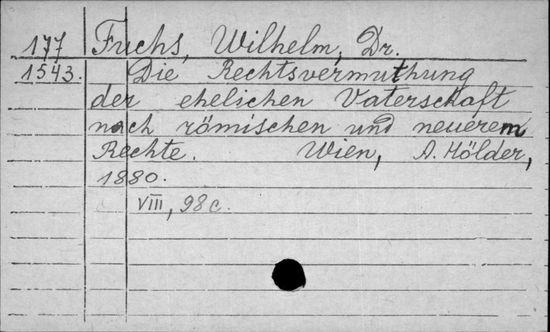 177 Fuchs, Wilhelm, Dr.
1543. Die Rechtsvermuthung
der ehelichen Vaterschaft
nach römischen und neuerem
Rechte. Wien, A. Hölder,
1880.
VIII, 98 c.